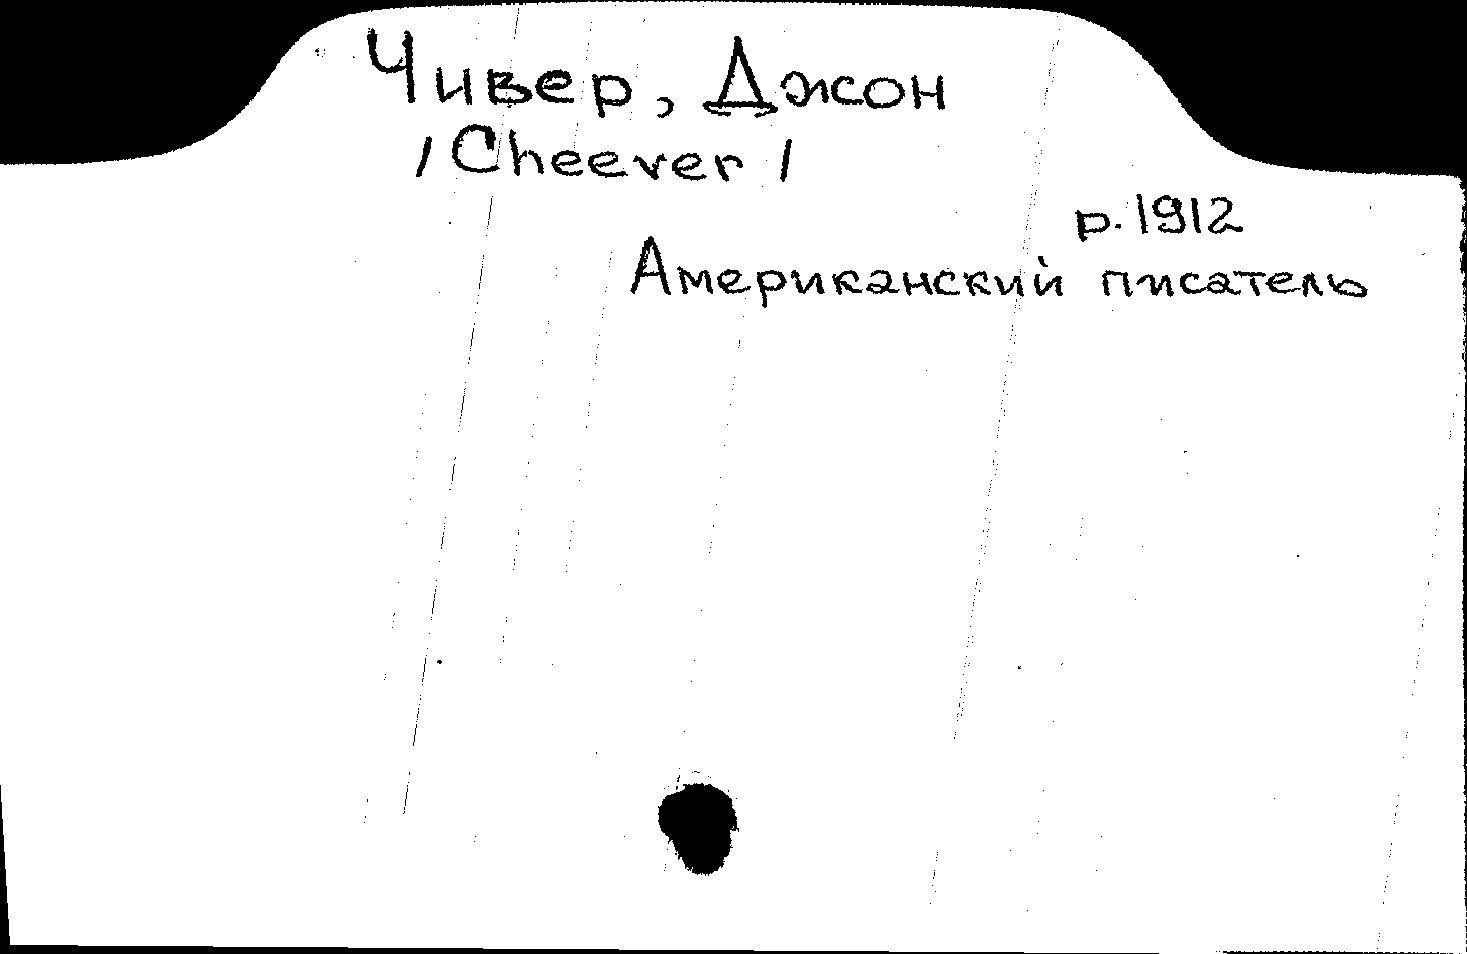 Чивер, Джон
/Cheever/
р. 1912
Американский писатель